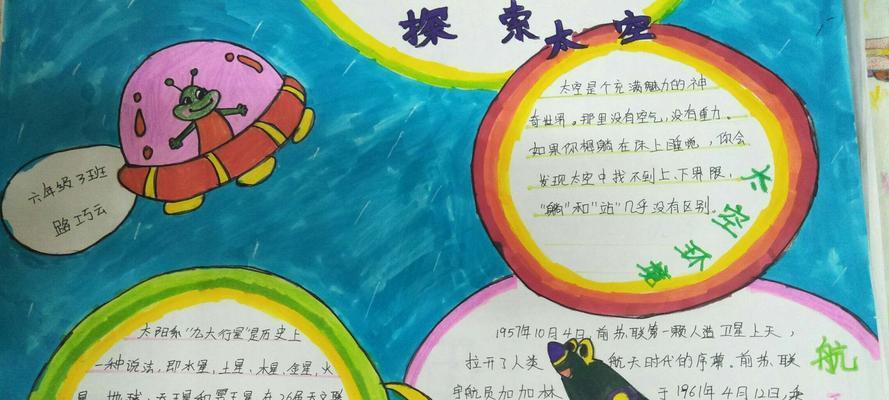 探索太空
六年级3班
路巧云
太空是个充满魅力的神
奇世界。那里没有空气，没有重力。
如果你想躺在床上睡觉，你会
发现太空中找不到上、下界限，
“躺”和“站”几乎没有区别。
太空环境
太阳系“九大行星”是历史上
一种说法，即水星、土星、木星、金星、火
星、地球、天王星和冥王星，在26届天文联
1957年10月4日，前苏联第一颗人造卫星上天，
拉开了人类航天时代的序幕。前苏联
宇航员加加林于1961年4月12日，乘
航